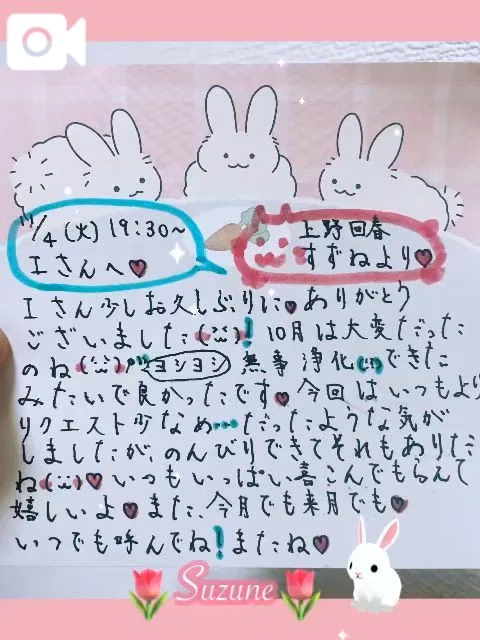 11/4(火) 19:30~
Iさんへ♥
上野回春
すずねより♥
Iさん少しお久しぶりに♥ ありがとう
ございました(¨̮)! 10月は大変だった
のね(¨̮) ヨシヨシ 無事浄化(¨̮)できた
みたいで良かったです♥ 今回はいつもより
リクエスト少なめ…だったような気が
しましたが、のんびりできてそれもありだ
ね(¨̮)♥ いつもいっぱい喜こんでもらえて
嬉しいよ♥ また、今月でも来月でも♥
いつでも呼んでね! またね♥
Suzune